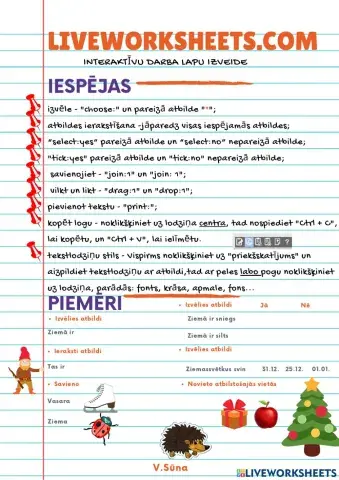 LIVEWORKSHEETS.COM
INTERAKTĪVU DARBA LAPU IZVEIDE
IESPĒJAS
izvēle - "choose:" un pareizā atbilde "*";
atbildes ierakstīšana -jāparedz visas iespējamās atbildes;
"select:yes" pareizā atbilde un "select:no" nepareizā atbilde;
"tick:yes" pareizā atbilde un "tick:no" nepareizā atbilde;
savienojiet - "join:1" un "join: 1";
vilkt un likt - "drag:1" un "drop:1";
pievienot tekstu - "print:";
kopēt logu - noklikšķiniet uz lodziņa centra, tad nospiediet "Ctrl + C",
lai kopētu, un "Ctrl + V", lai ielīmētu.
tekstlodziņu stils - vispirms noklikšķiniet uz "priekšskatījums" un
aizpildiet tekstlodziņu ar atbildi,tad ar peles labo pogu noklikšķiniet
uz lodziņa, parādās: fonts, krāsa, apmale, fons...
PIEMĒRI
• Izvēlies atbildi Jā Nē
• Izvēlies atbildi Ziemā ir sniegs
Ziemā ir Ziemā ir silts
• Ieraksti atbildi • Izvēlies atbildi
Tas ir Ziemassvētkus svin 31.12. 25.12. 01.01.
• Savieno • Novieto atbilstošajās vietās
Vasara
Ziema
V.Sūna
LIVEWORKSHEETS